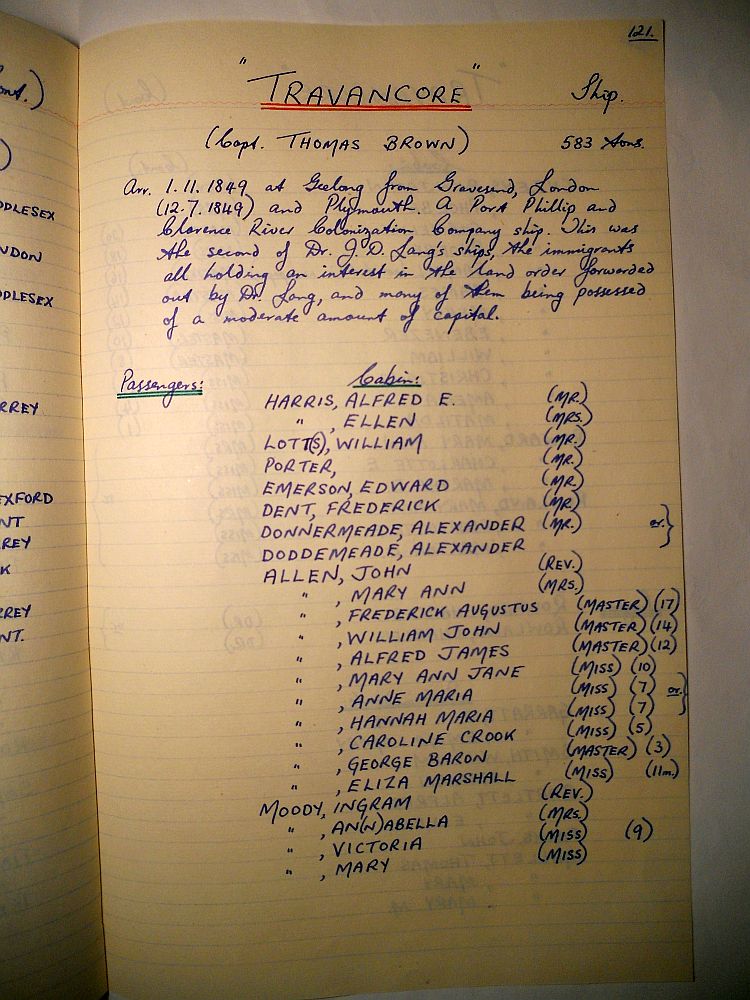 121.
"TRAVANCORE" Ship.
(Capt. THOMAS BROWN) 583 tons.
Arr. 1.11.1849 at Geelong from Gravesend, London
(12.7.1849) and Plymouth. A Port Phillip and
Clarence River Colonization Company ship. This was
the second of Dr. J.D. Lang's ships, the immigrants
all holding an interest in the land order forwarded
out by Dr. Lang, and many of them being possessed
of a moderate amount of capital.
Passengers: Cabin:
HARRIS, ALFRED E. (MR.)
" , ELLEN (MRS.)
LOTT(S), WILLIAM (MR.)
PORTER, (MR.)
EMERSON, EDWARD (MR.)
DENT, FREDERICK (MR.)
DONNERMEADE, ALEXANDER (MR.) or }
DODDEMEADE, ALEXANDER
ALLEN, JOHN (REV.)
" , MARY ANN (MRS.)
" , FREDERICK AUGUSTUS (MASTER) (17)
" , WILLIAM JOHN (MASTER) (14)
" , ALFRED JAMES (MASTER) (12)
" , MARY ANN JANE (MISS) (10)
" , ANNE MARIA (MISS) (7) or }
" , HANNAH MARIA (MISS) (7)
" , CAROLINE CROOK (MISS) (5)
" , GEORGE BARON (MASTER) (3)
" , ELIZA MARSHALL (MISS) (11m.)
MOODY, INGRAM (REV.)
" , AN(N)ABELLA (MRS.)
" , VICTORIA (MISS) (9)
" , MARY (MISS)